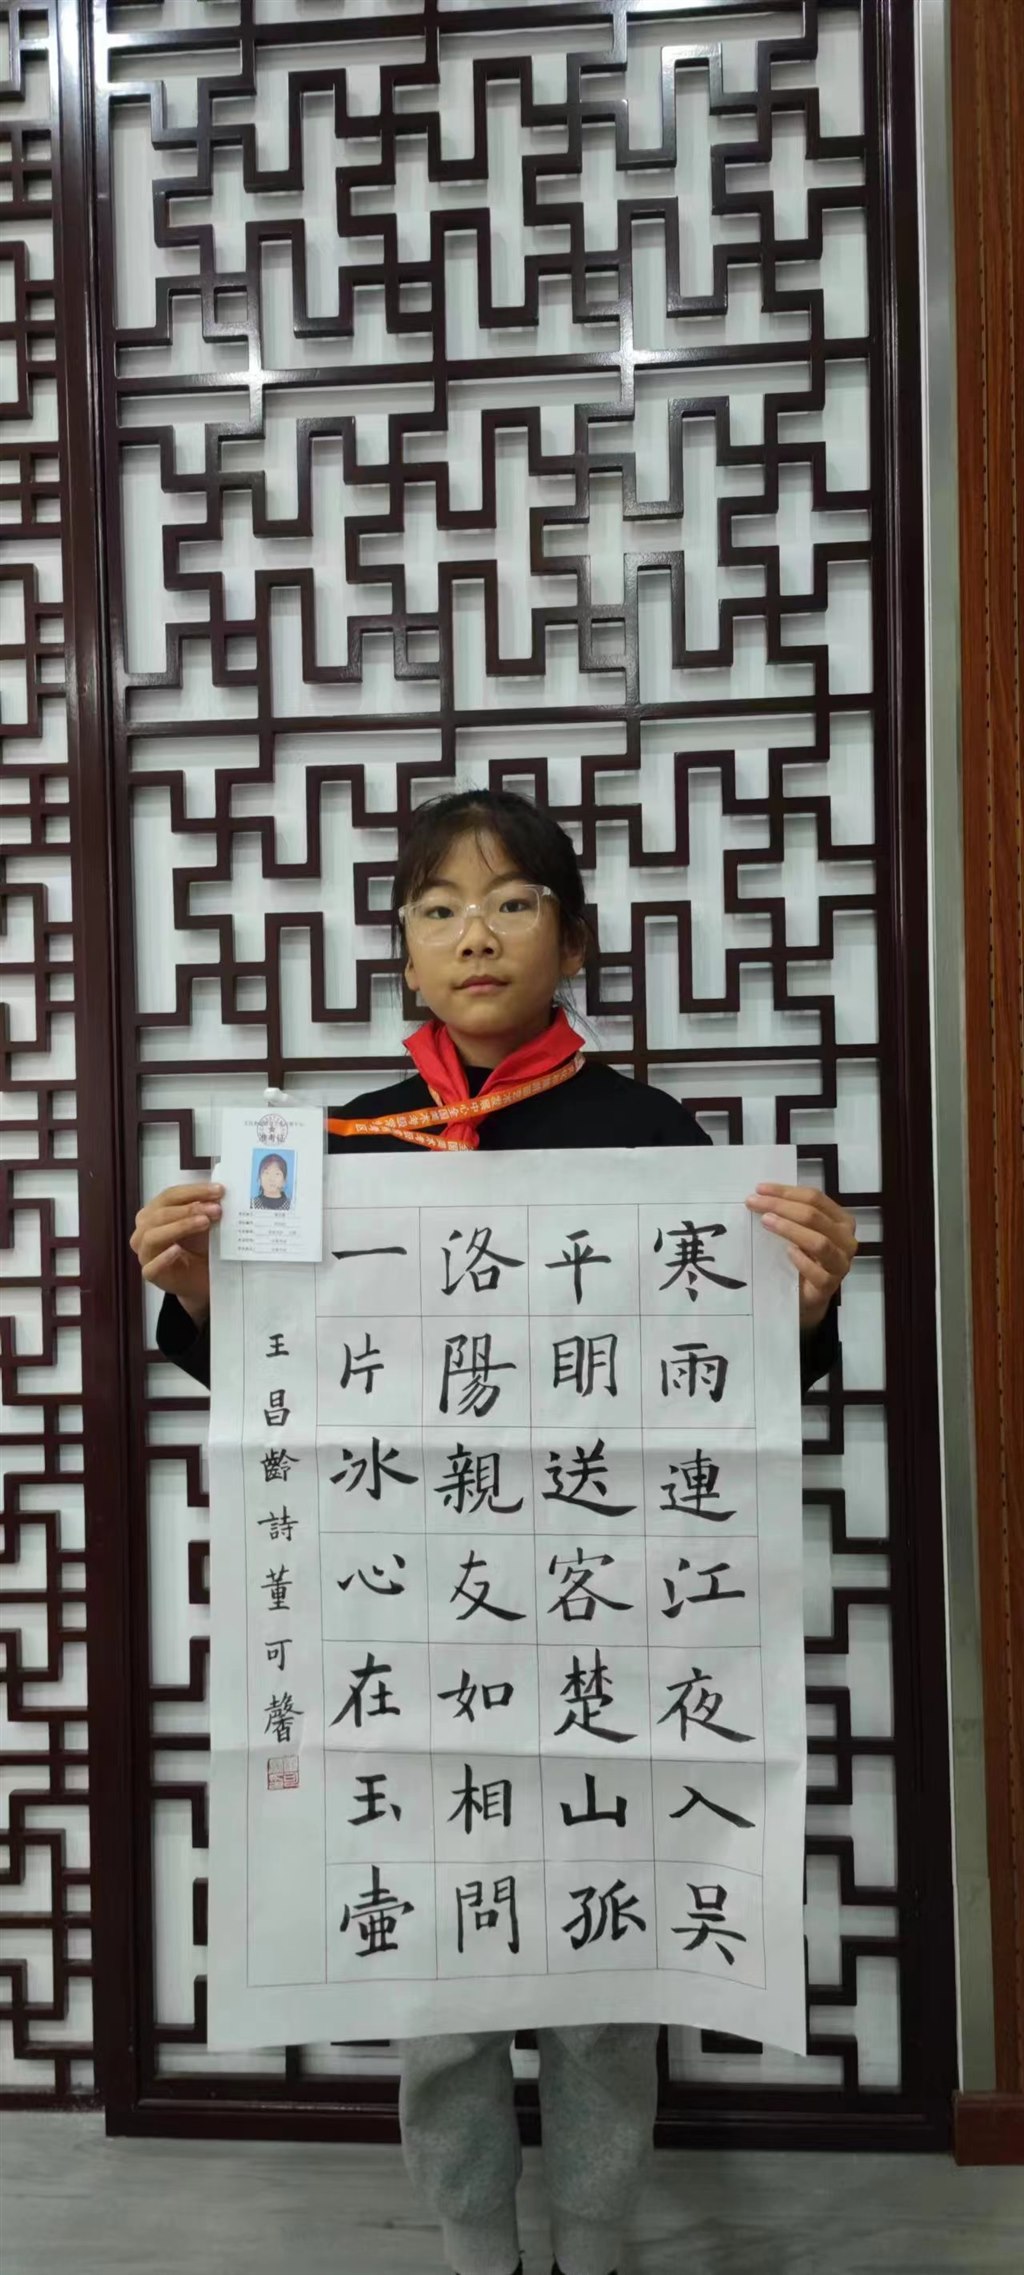 寒雨連江夜入吴
平明送客楚山孤
洛陽親友如相問
一片冰心在玉壺
王昌齡詩董可馨
准考证